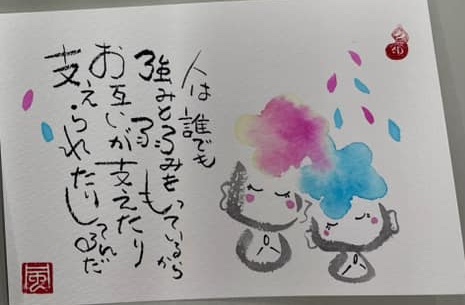 人は誰でも
強みと弱みをもっているから
お互いが支えたり
支えられたりしてるんだ
風